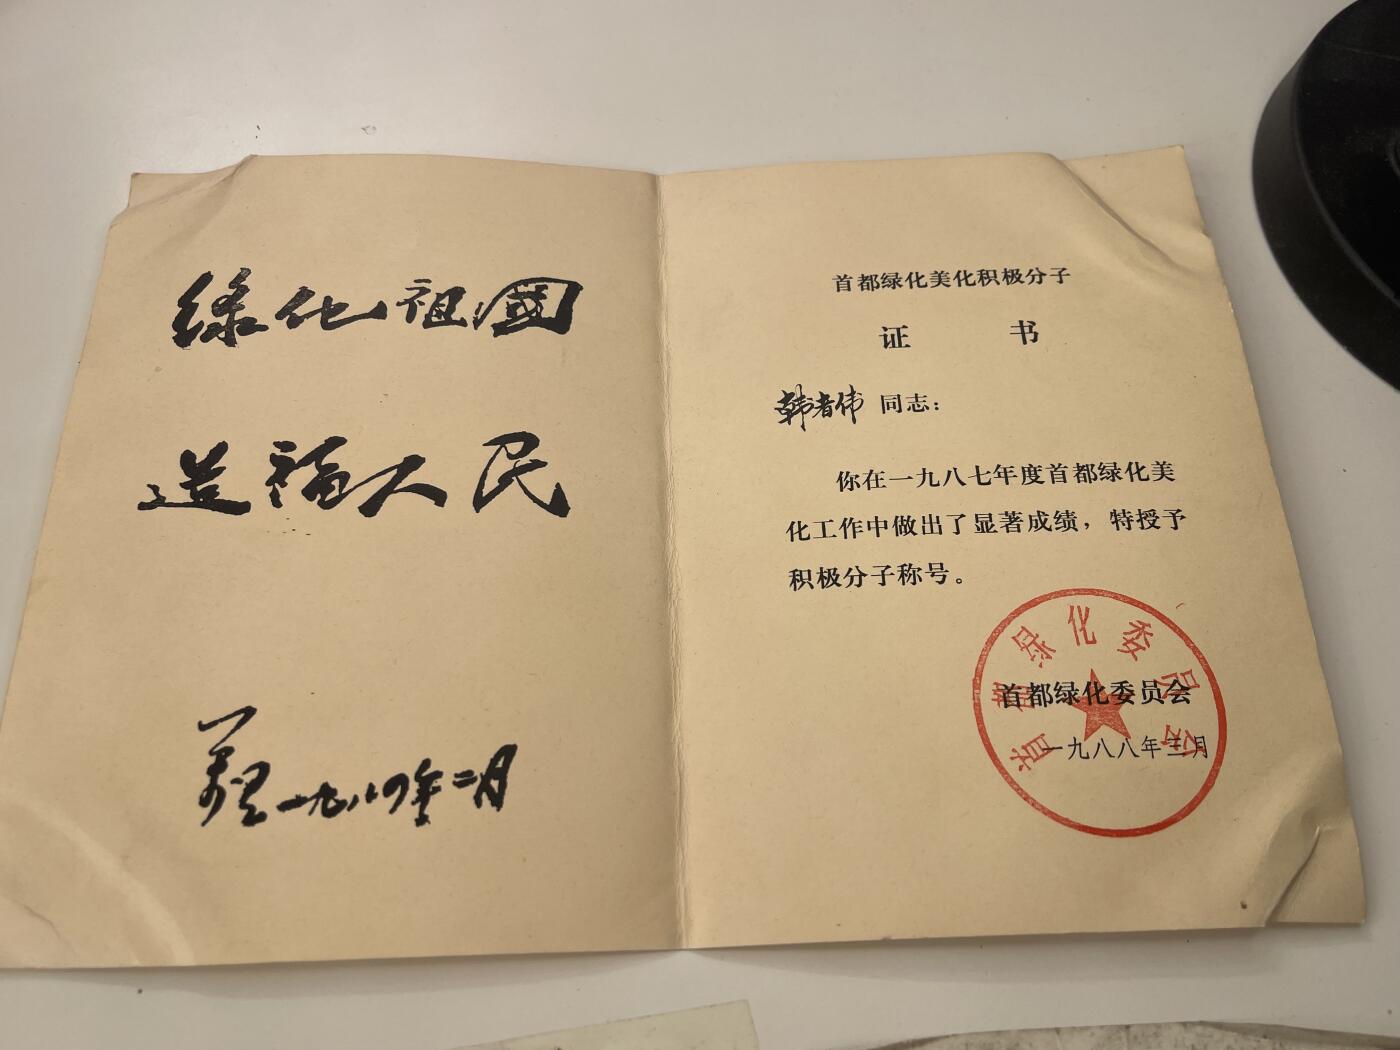 绿化祖國
造福人民
万里一九八四年二月
首都绿化美化积极分子
证书
韩者伟 同志：
你在一九八七年度首都绿化美
化工作中做出了显著成绩，特授予
积极分子称号。
首都绿化委员会
首都绿化委员会
一九八八年三月